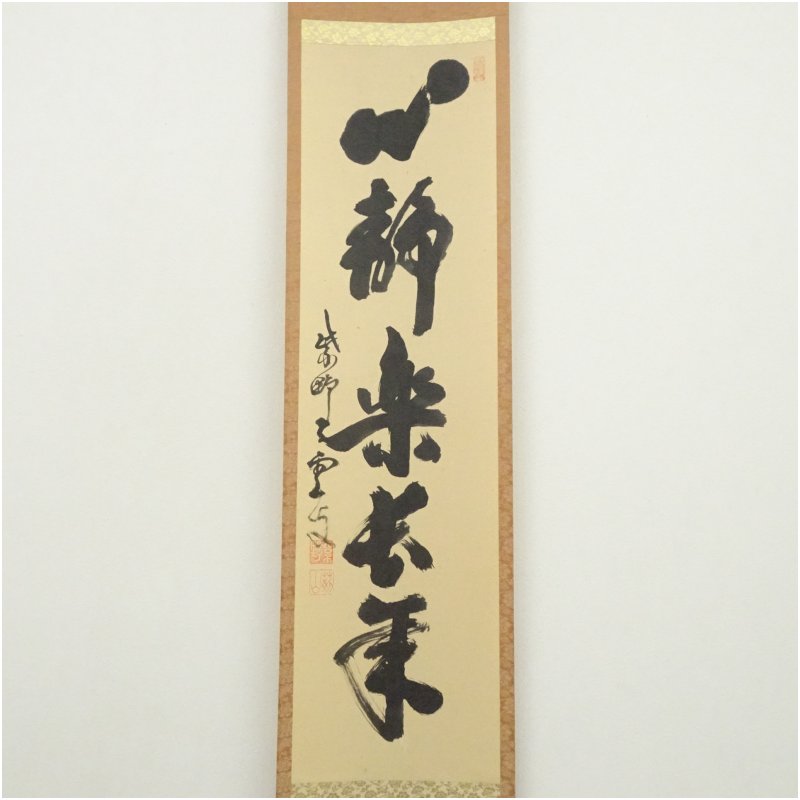 心静楽長年
紫野